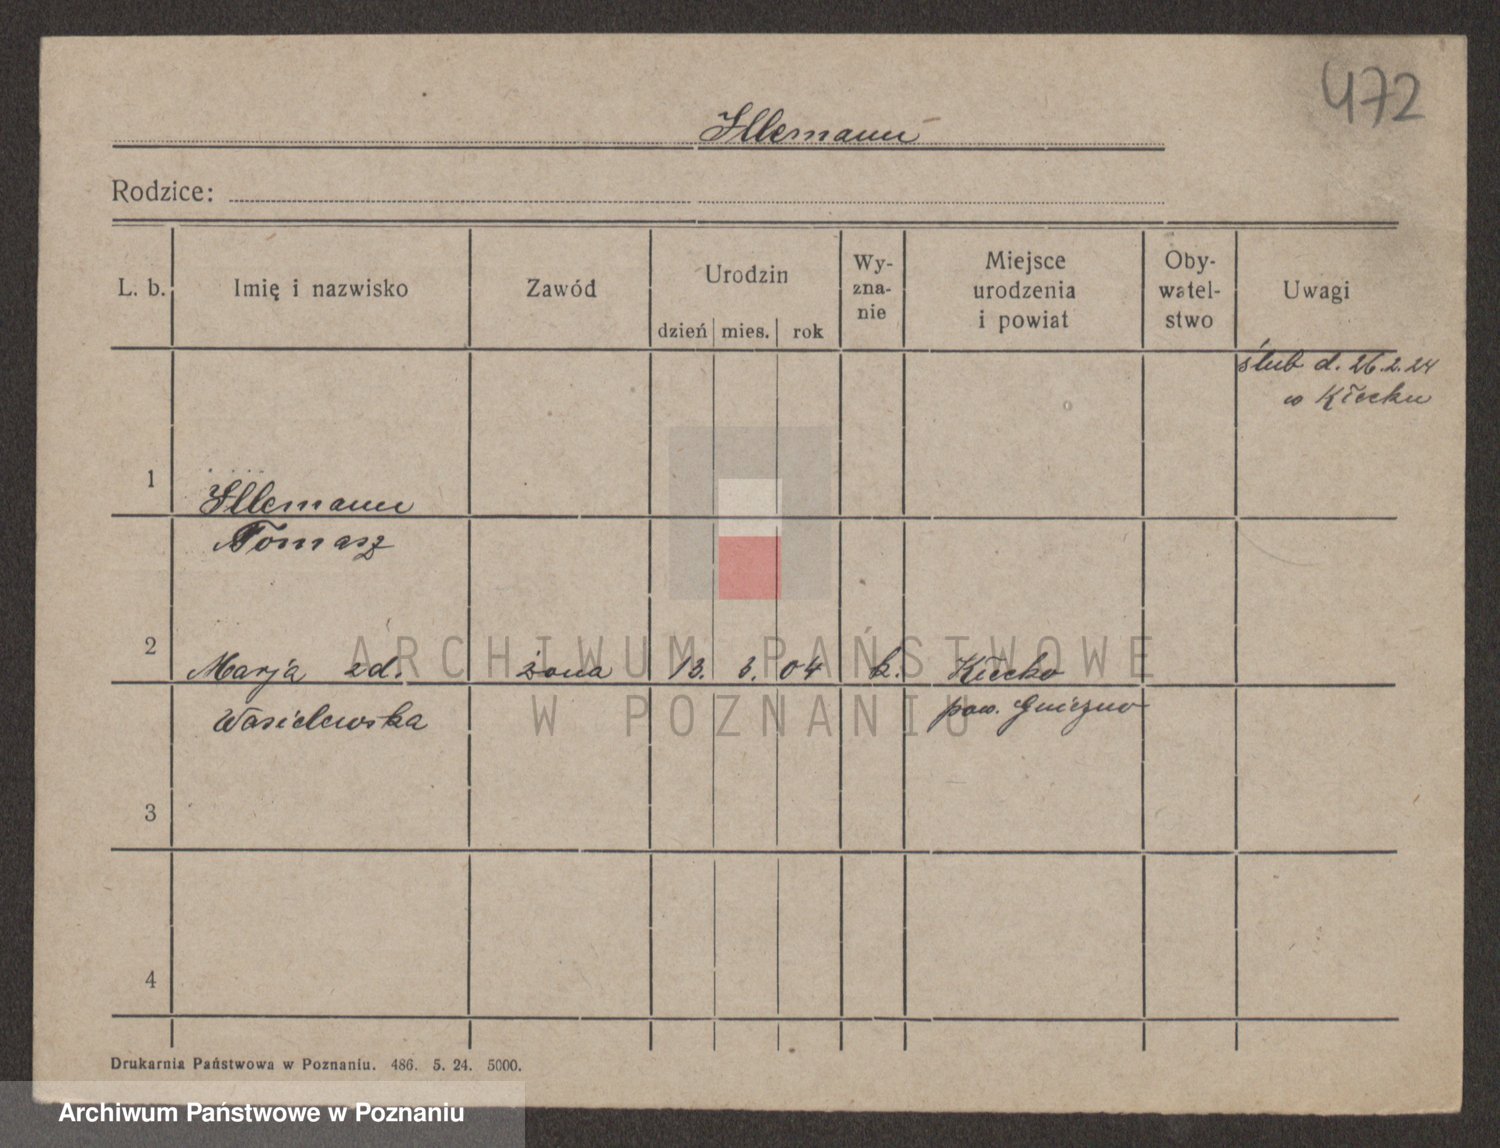 472
Illemann
Rodzice:
L. b.
Imię i nazwisko
Zawód
Urodzin
dzień
mies.
rok
Wy-
zna-
nie
Miejsce
urodzenia
i powiat
Oby-
watel-
stwo
Uwagi
ślub d. 26.2.24
w Kłecku
1
Illemann
Tomasz
2
Marja zd. żona 13. 3. 04 k. Kłecko
Wasielewska pow. Gniezno
3
4
Drukarnia Państwowa w Poznaniu. 486. 5. 24. 5000.
ARCHIWUM PAŃSTWOWE
W POZNANIU
Archiwum Państwowe w Poznaniu